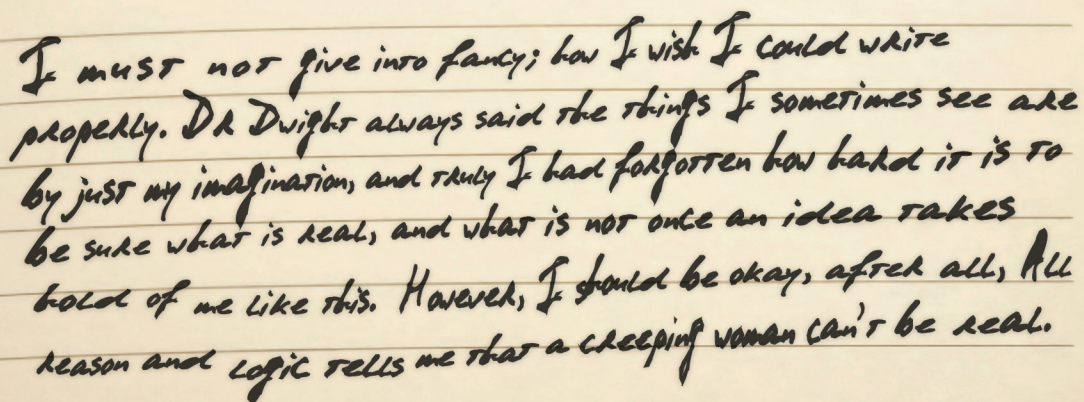 I must not give into fancy; how I wish I could write
properly. DR Dwight always said the things I sometimes see are
by just my imagination, and truly I had forgotten how hard it is to
be sure what is real, and what is not once an idea takes
hold of me like this. However, I should be okay, after all, All
reason and logic tells me that a creeping woman can't be real.